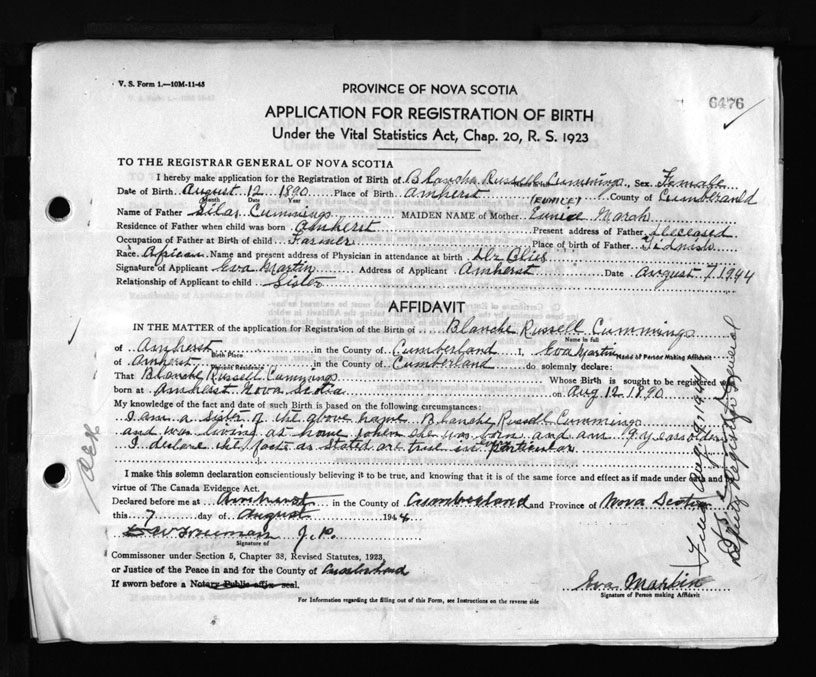 V. S. Form 1.—10M-11-43
PROVINCE OF NOVA SCOTIA
6476
APPLICATION FOR REGISTRATION OF BIRTH
Under the Vital Statistics Act, Chap. 20, R. S. 1923
TO THE REGISTRAR GENERAL OF NOVA SCOTIA
I hereby make application for the Registration of Birth of Blanche Russell Cummings, Sex Female
Date of Birth August 12 1890 Place of Birth Amherst County of Cumberland
Month Date Year (EUNICE)
Name of Father Silas Cummings MAIDEN NAME of Mother Eunice Marsh
Residence of Father when child was born Amherst Present address of Father Deceased
Occupation of Father at Birth of child Farmer Place of birth of Father Tidnish
Race African Name and present address of Physician in attendance at birth Dr Bliss
Signature of Applicant Eva Martin Address of Applicant Amherst Date August 7, 1944
Relationship of Applicant to child Sister
AFFIDAVIT
IN THE MATTER of the application for Registration of the Birth of Blanche Russell Cummings
Name in full
of Amherst in the County of Cumberland I, Eva Martin
Birth Place Name of Person Making Affidavit
of Amherst in the County of Cumberland do solemnly declare:
Present Residence
That Blanche Russell Cummings Whose Birth is sought to be registered was
born at Amherst Nova Scotia on Aug 12 1890
My knowledge of the fact and date of such Birth is based on the following circumstances:
I am a sister of the above name Blanche Russell Cummings
and was living at home when she was born and am 9 years older
I declare the facts as stated are true in every particular
I make this solemn declaration conscientiously believing it to be true, and knowing that it is of the same force and effect as if made under oath and by
virtue of The Canada Evidence Act.
Declared before me at Amherst in the County of Cumberland and Province of Nova Scotia
this 7 day of August 1944
Freeman J.P.
Signature of
Commissioner under Section 5, Chapter 38, Revised Statutes, 1923,
or Justice of the Peace in and for County of Cumberland
If sworn before a Notary Public affix seal.
Eva Martin
Signature of Person making Affidavit
For Information regarding the filling out of this Form, see Instructions on the reverse side
Filed Aug 9, 1944
Deputy Registrar General